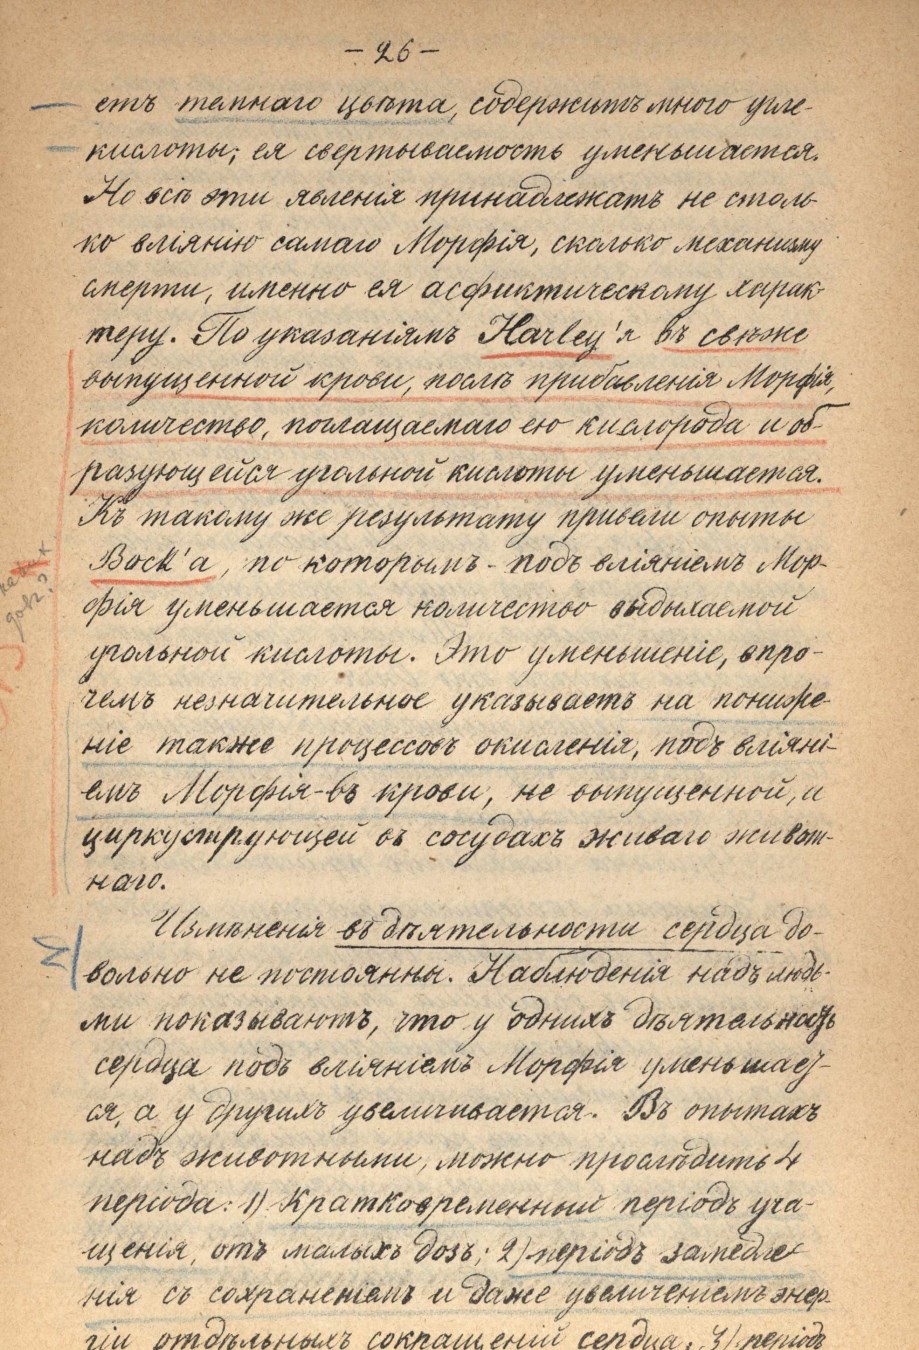 – 26 –
етъ темнаго цвѣта, содержитъ много угле-
кислоты; ея свертываемость уменьшается.
Но всѣ эти явленія принадлежатъ не столь
ко вліянію самаго Морфія, сколько механизму
смерти, именно ея асфиктическому харак-
теру. По указаніямъ Harley'я въ свѣже
выпущенной крови, послѣ прибавленія Морфія,
количество, поглащаемаго ею кислорода и об-
разующейся угольной кислоты уменьшается.
Къ такому же результату привели опыты
Bock'а, по которымъ - подъ вліяніемъ Мор-
фія уменьшается количество выдыхаемой
угольной кислоты. Это уменьшеніе, впро-
чемъ незначительное указываетъ на пониже-
ніе также процессовъ окисленія, подъ вліяні-
емъ Морфія - въ крови, не выпущенной, и
циркулирующей въ сосудахъ живаго живот-
наго.
Измѣненія въ дѣятельности сердца до-
вольно не постоянны. Наблюденія надъ людь-
ми показываютъ, что у однихъ дѣятельность
сердца подъ вліяніемъ Морфія уменьшает-
ся, а у другихъ увеличивается. Въ опытахъ
надъ животными, можно прослѣдить 4
періода: 1) Кратковременный періодъ уча-
щенія, отъ малыхъ дозъ; 2) періодъ замедле-
нія съ сохраненіемъ и даже увеличеніемъ энер-
гіи отдѣльныхъ сокращеній сердца; 3) періодъ